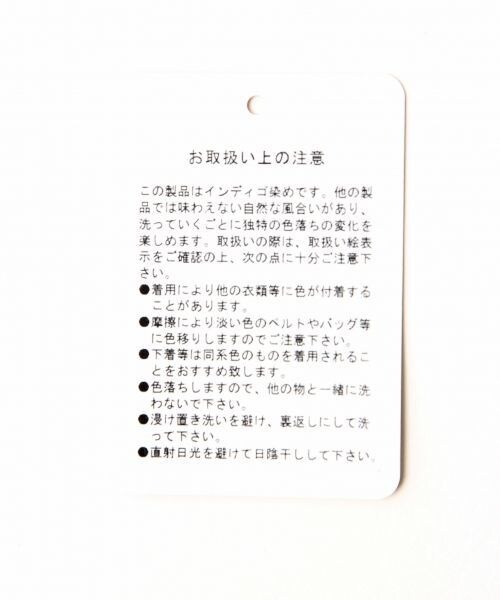 お取扱い上の注意
この製品はインディゴ染めです。他の製
品では味わえない自然な風合いがあり、
洗っていくごとに独特の色落ちの変化を
楽しめます。取扱いの際は、取扱い絵表
示をご確認の上、次の点に十分ご注意下
さい。
●着用により他の衣類等に色が付着する
ことがあります。
●摩擦により淡い色のベルトやバッグ等
に色移りしますのでご注意下さい。
●下着等は同系色のものを着用されるこ
とをおすすめ致します。
●色落ちしますので、他の物と一緒に洗
わないで下さい。
●浸け置き洗いを避け、裏返しにして洗
って下さい。
●直射日光を避けて日陰干しして下さい。